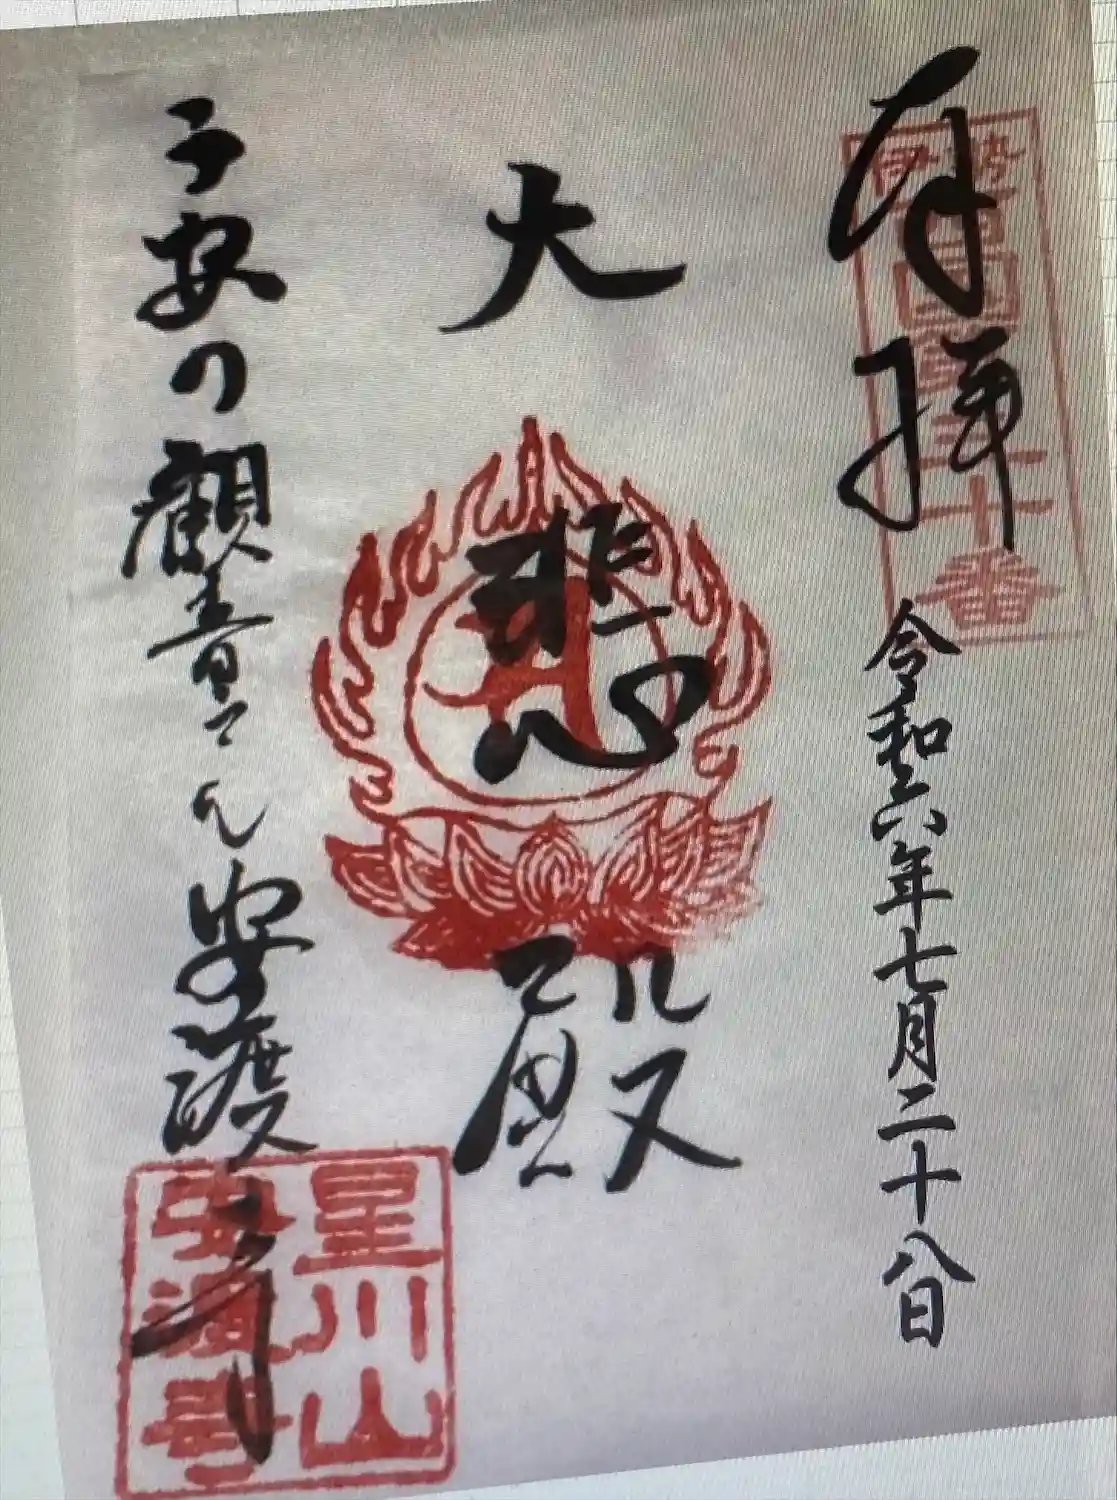 奉拝
令和六年七月二十八日
伊勢
西國第三十番
大悲殿
子安の観音さん安渡寺
星川山
安渡寺